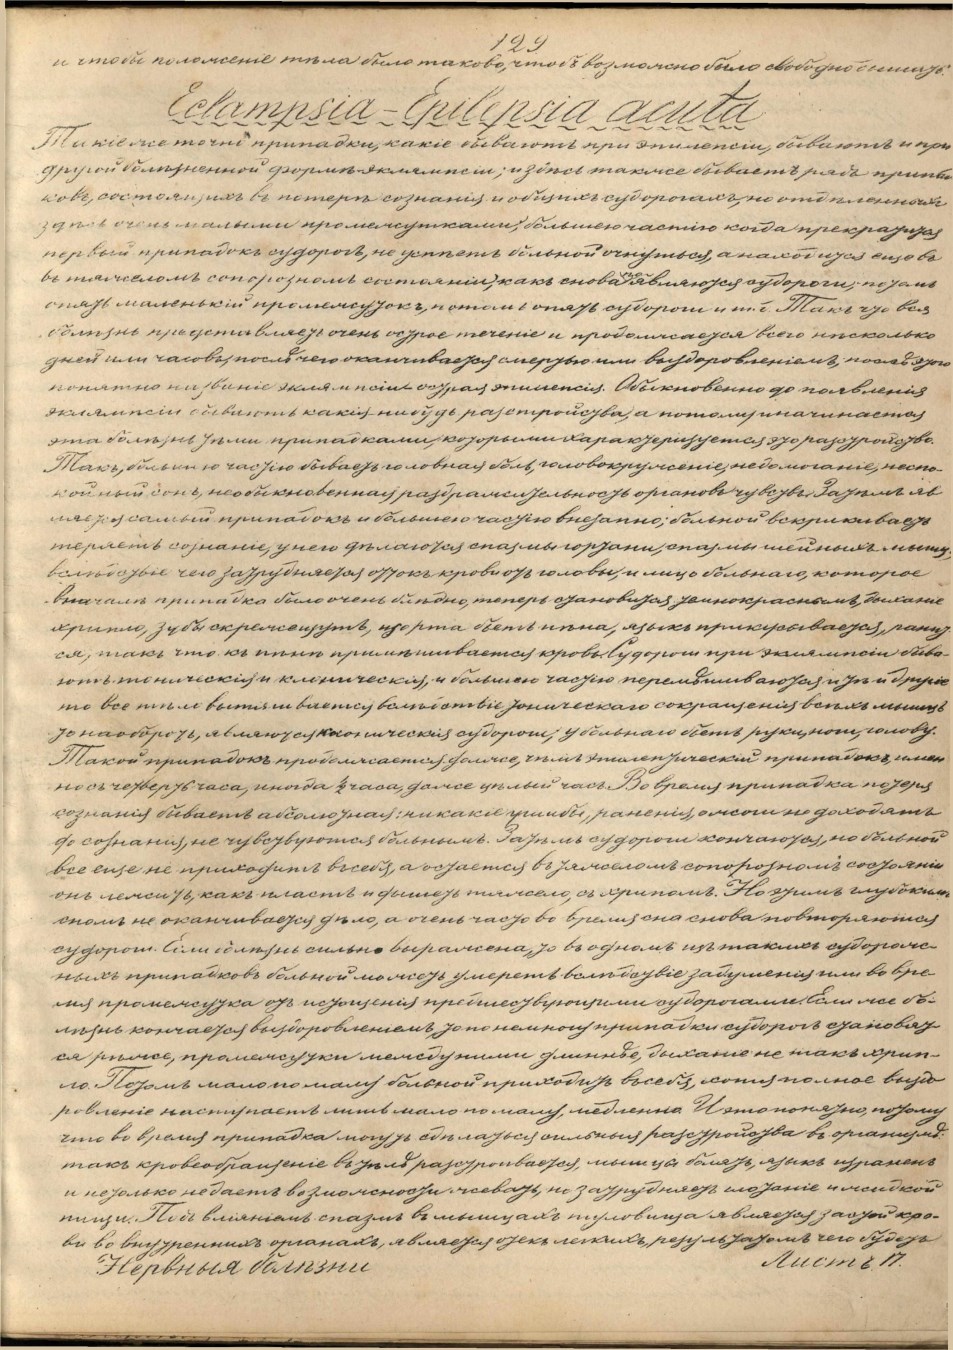 129
и чтобы положеніе тѣла было таково, чтобъ возможно было свободно дышать.
Eclampsia – Epilepsia acuta
Такіе же точно припадки, какіе бываютъ при эпилепсіи, бываютъ и при
другой болѣзненной формѣ-эклямпсіи; и здѣсь также бываетъ рядъ припад
ковъ, состоящихъ въ потерѣ сознанія и общихъ судорогахъ, но отдѣленныхъ
здѣсь очень малыми промежутками; большею частію когда прекратится
первый припадокъ судорогъ, не успѣетъ больной очнуться, а находится еще въ
въ тяжеломъ сопорозномъ состояніи, какъ снова являются судороги; потомъ
опять маленькій промежутокъ, потомъ опять судороги и т.д. Такъ что вся
болѣзнь представляетъ очень острое теченіе и продолжается всего нѣсколько
дней или часовъ, послѣ чего оканчивается смертью или выздоровленіемъ, послѣ этого
понятно названіе эклямпсіи острая эпилепсія. Обыкновенно до появленія
эклямпсіи бываютъ какія нибудь разстройства, а потому и начинается
эта болѣзнь тѣми припадками, которыми характеризуется это разстройство.
Такъ, большею частію бываетъ головная боль, головокруженіе, недомоганіе, неспо-
койный сонъ, необыкновенная раздражительность органовъ чувствъ. Затѣмъ яв
ляется самый припадокъ и большею частію внезапно; больной вскрикиваетъ
теряетъ сознаніе, у него дѣлаются спазмы гортани, спазмы шейныхъ мышцъ,
вслѣдствіе чего затрудняется оттокъ крови отъ головы, и лицо больнаго, которое
вначалѣ припадка было очень блѣдно, теперь становится темнокраснымъ, дыханіе
хрипло, зубы скрежещутъ, изо рта бьетъ пѣна, языкъ прикусывается, ранит
ся, такъ что къ пѣнѣ примѣшивается кровь. Судороги при эклямпсіи быва-
ютъ тоническія и клоническія, и большею частію перемѣшиваются и тѣ и другіе
то все тѣло вытягивается вслѣдствіе тоническаго сокращенія всѣхъ мышцъ
то наоборотъ, являются клоническія судороги; у больнаго бьетъ руки, ноги, голову.
Такой припадокъ продолжается дольше, чѣмъ эпилептическій припадокъ, имен
но съ четверть часа, иногда ½ часа, даже цѣлый часъ. Во время припадка потеря
сознанія бываетъ абсолютная: никакіе ушибы, раненія, ожоги не доходятъ
до сознанія, не чувствуются больнымъ. Затѣмъ судороги кончаются, но больной
все еще не приходитъ въ себя, а остается въ тяжеломъ сопорозномъ состояніи
онъ лежитъ, какъ пластъ и дышетъ тяжело, съ хрипомъ. Но этимъ глубокимъ
сномъ не оканчивается дѣло, а очень часто во время сна снова повторяются
судороги. Если болѣзнь сильно выражена, то въ одномъ изъ такихъ судорож-
ныхъ припадковъ больной можетъ умереть вслѣдствіе задушенія или во вре-
мя промежутка отъ истощенія предшествующими судорогами. Если же бо-
лѣзнь кончается выздоровленіемъ, то по немногу припадки судорогъ становят
ся рѣже, промежутки между ними длиннѣе, дыханіе не такъ хрип-
ло. Потомъ мало по малу больной приходитъ въ себя, хотя полное выздо
ровленіе наступаетъ лишь мало по малу, медленно. И это понятно, потому
что во время припадка могутъ сдѣлаться сильныя разстройства въ организмѣ:
такъ кровеобращеніе въ тѣлѣ разстроивается, мышцы болятъ, языкъ израненъ
и не только не даетъ возможности жевать, но затрудняетъ глотаніе и жидкой
пищи. Подъ вліяніемъ спазмъ въ мышцахъ туловища является застой кро-
ви во внутреннихъ органахъ, является отекъ легкихъ, результатомъ чего будетъ
Нервныя болѣзни
Листъ 17.